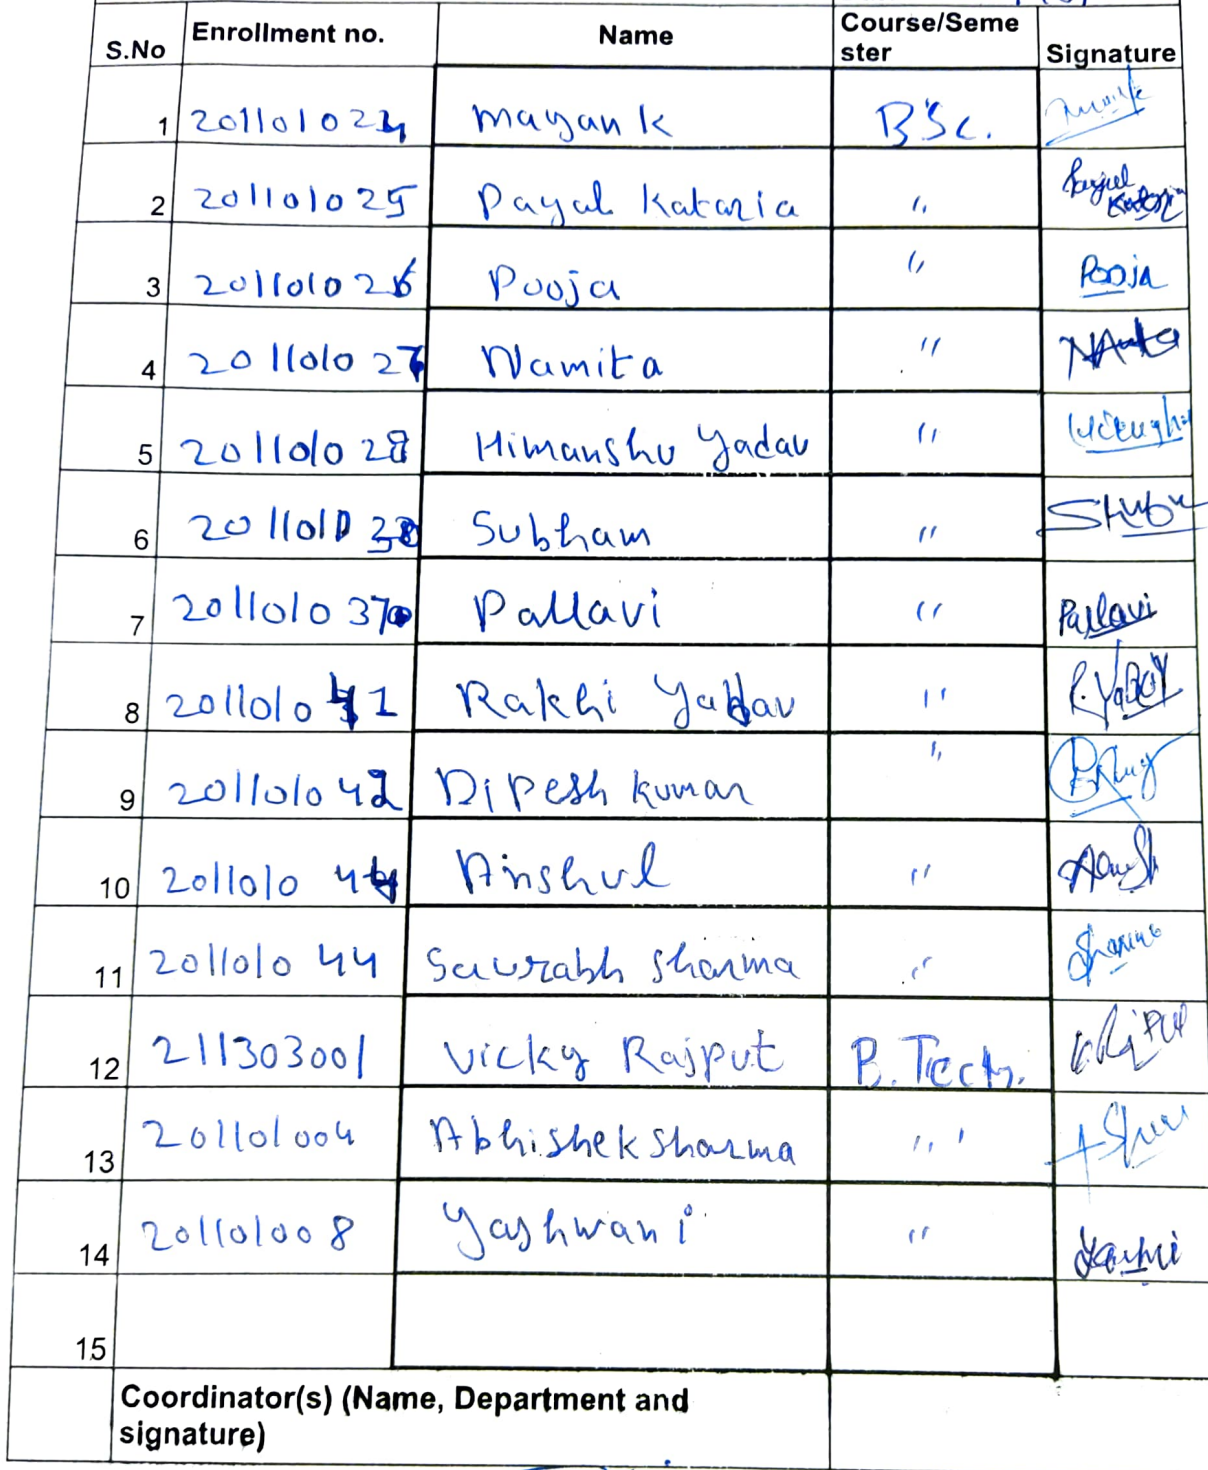 S.No Enrollment no. Name Course/Seme
ster Signature
1 201101024 Mayank BSc.
2 201101025 Payal Kataria " Payal
Kataria
3 201101026 Pooja " Pooja
4 201101027 Namita "
5 201101028 Himanshu Yadav "
6 2011010 Subham "
7 201101037 Pallavi " Pallavi
8 201101041 Rakhi Yadav " R. Yadav
9 201101042 Dipesh kumar "
10 2011010 Anshul "
11 201101044 Saurabh Sharma " Sharma
12 211303001 Vicky Rajput B. Tech.
13 201101004 Abhishek Sharma "
14 201101008 Yashwani "
15
Coordinator(s) (Name, Department and
signature)